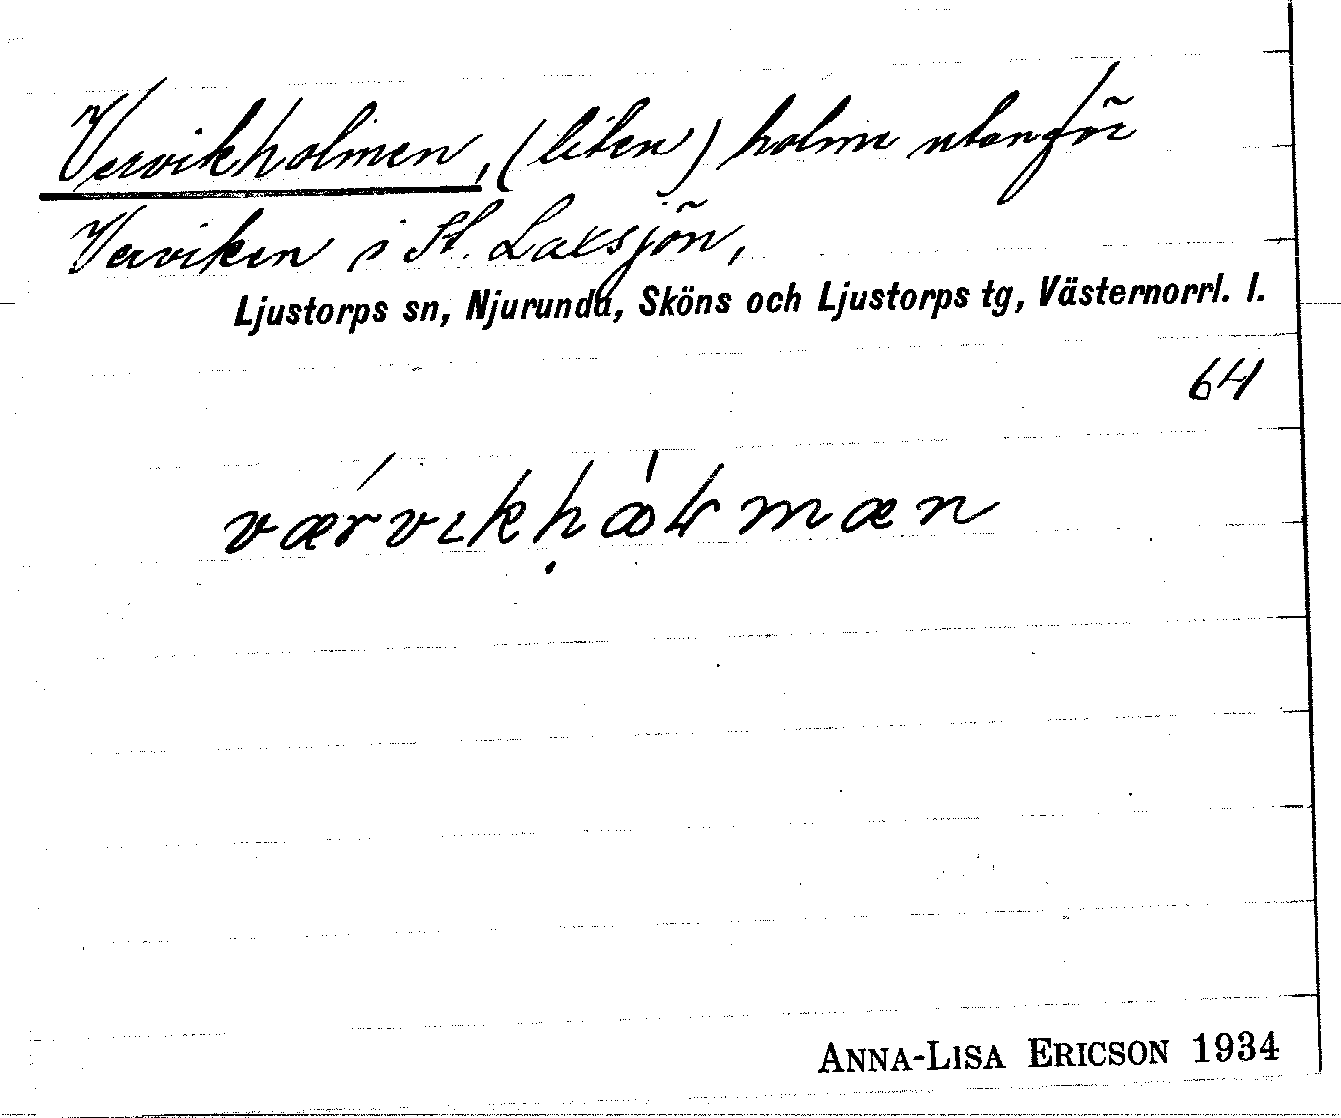 Vervikholmen, (liten) holme utanför
Verviken i St. Laxsjön,
Ljustorps sn, Njurunda, Sköns och Ljustorps tg, Västernorrl. l.
64
værvıkḥαƚmæn
ANNA-LISA ERICSON 1934